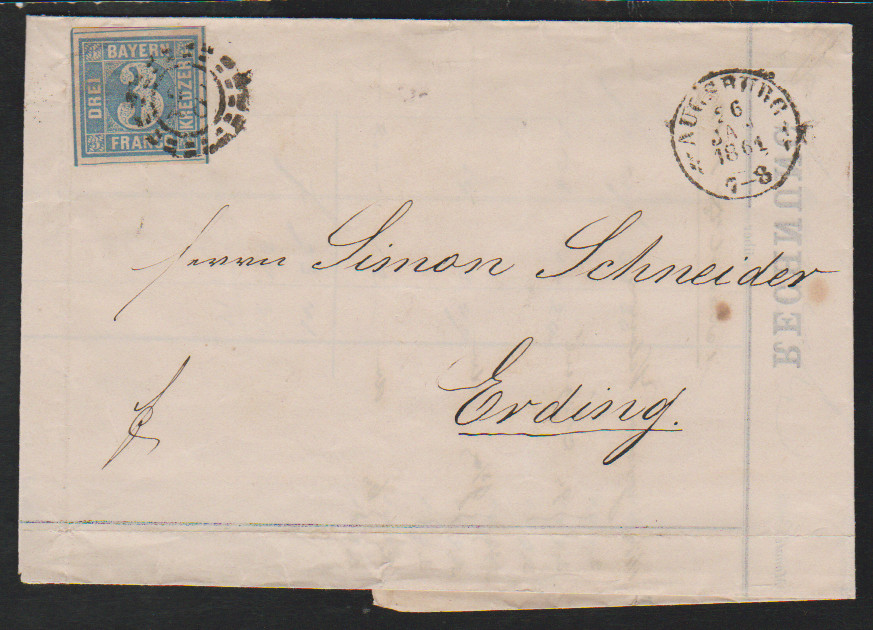 BAYERN
DREI
3
KREUZER
FRANCO
AUGSBURG
26
JAN
1861
7-8
RECHNUNG
Herrn Simon Schneider
Erding.